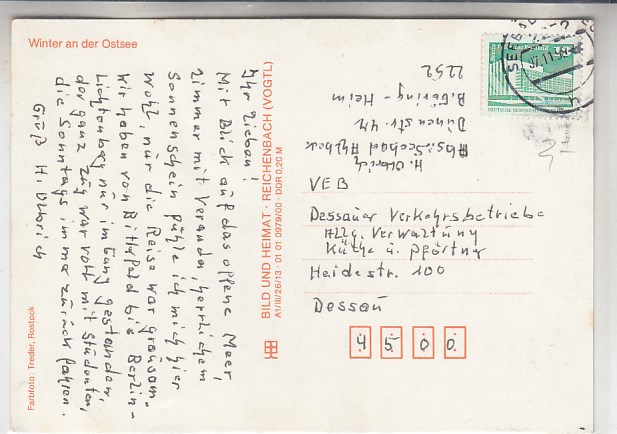 Winter an der Ostsee
Ihr Lieben!
Mit Blick auf das offene Meer,
Zimmer mit Veranda, herrlichem
Sonnenschein fühle ich mich hier
wohl, nur die Reise war grausam.
Wir haben von Bitterfeld bis Berlin-
Lichtenberg nur im Gang gestanden,
der ganz Zug war voll mit Studenten,
die Sonntags immer zurück fahren.
Gruß H. Olbrich
Farbfoto: Treder, Rostock
BILD UND HEIMAT · REICHENBACH (VOGTL)
A1/III/26/13 · 01 01 0979/00 · DDR 0,20 M
H. Olbrich
Seebad Ahlbeck
Dünenstr. 47
B. Göring-Heim
2252
VEB
Dessauer Verkehrsbetriebe
Allg. Verwaltung
Küche u. Pförtner
Heidestr. 100
Dessau
4500